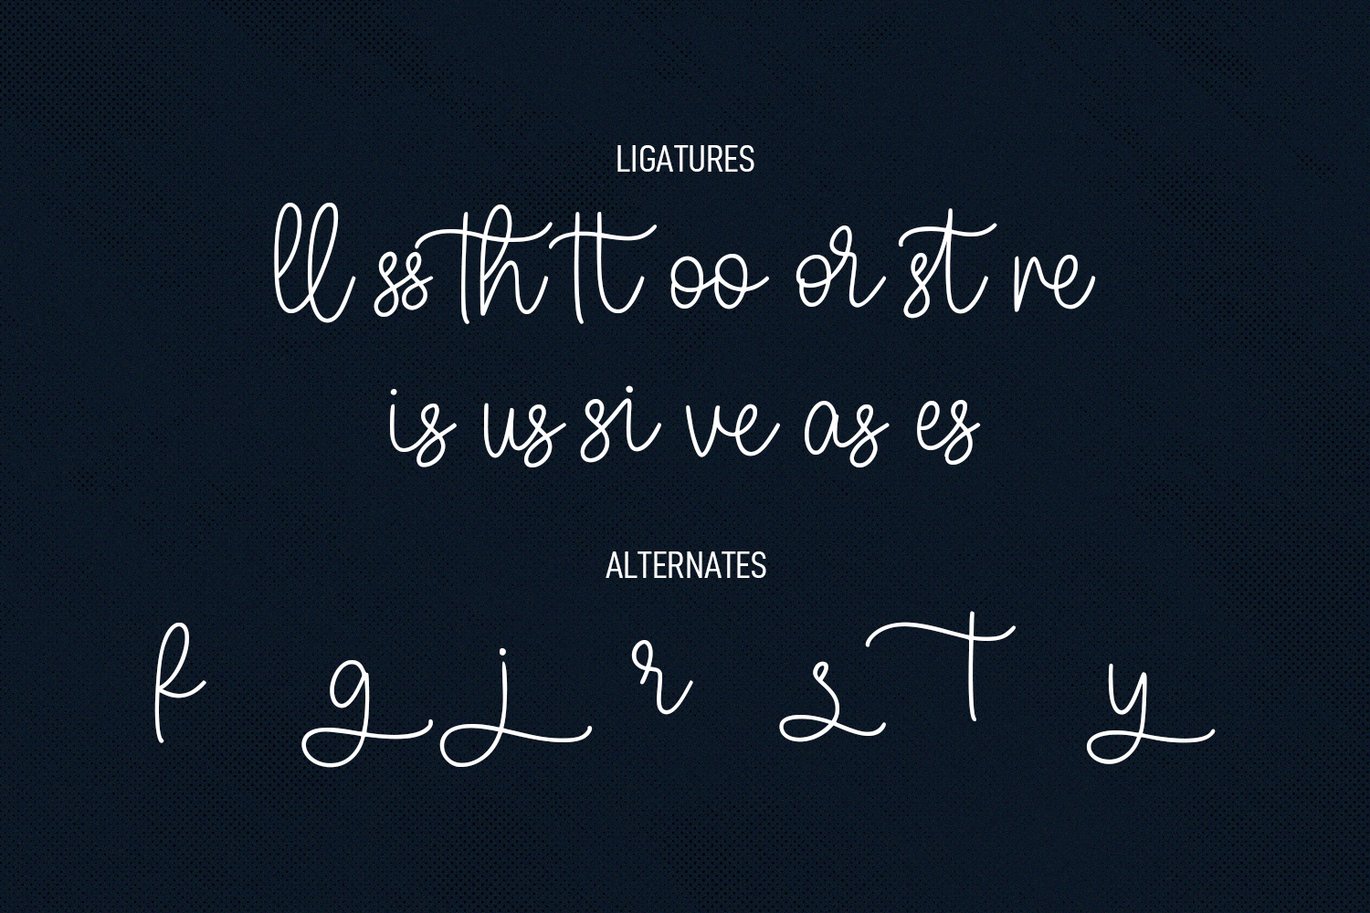 LIGATURES
ll ss th tt oo or st re
is us si ve as es
ALTERNATES
f g j r s t y